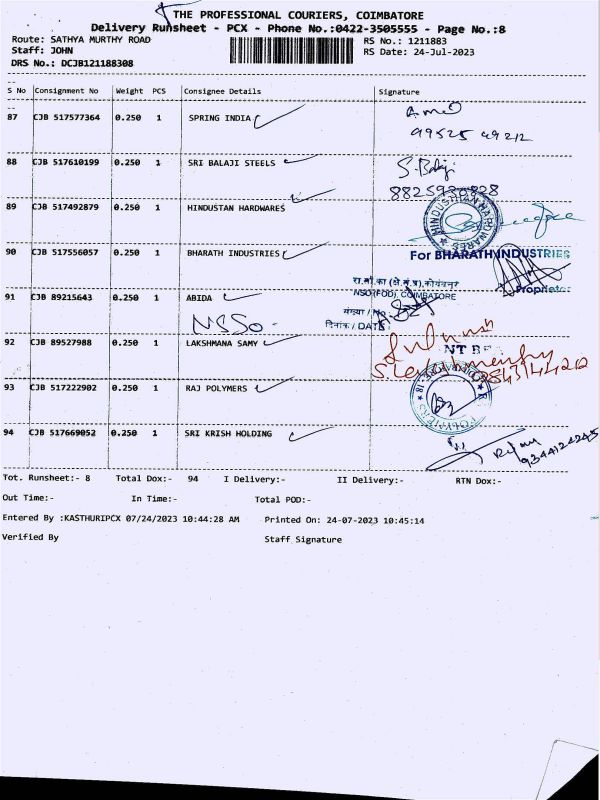 THE PROFESSIONAL COURIERS, COIMBATORE
Delivery Runsheet - PCX - Phone No.:0422-3505555 - Page No.:8
Route: SATHYA MURTHY ROAD RS No.: 1211883
Staff: JOHN RS Date: 24-Jul-2023
DRS No.: DCJB121188308
S No Consignment No Weight PCS Consignee Details Signature
87 CJB 517577364 0.250 1 SPRING INDIA
99525 49212
88 CJB 517610199 0.250 1 SRI BALAJI STEELS S. Balaji
8825980828
89 CJB 517492879 0.250 1 HINDUSTAN HARDWARES HINDUSTHAN HARDWARES
90 CJB 517556057 0.250 1 BHARATH INDUSTRIES For BHARATH INDUSTRIES
Proprietor
91 CJB 89215643 0.250 1 ABIDA
NSSO
रा.सां.का (क्षे.सं.प्र), कोयंबत्तूर
NSO(FOD), COIMBATORE
संख्या / No.
दिनांक / DATE
92 CJB 89527988 0.250 1 LAKSHMANA SAMY
93 CJB 517222902 0.250 1 RAJ POLYMERS
94 CJB 517669052 0.250 1 SRI KRISH HOLDING
9344124245
Tot. Runsheet:- 8 Total Dox:- 94 I Delivery:- II Delivery:- RTN Dox:-
Out Time:- In Time:- Total POD:-
Entered By :KASTHURIPCX 07/24/2023 10:44:28 AM Printed On: 24-07-2023 10:45:14
Verified By Staff Signature